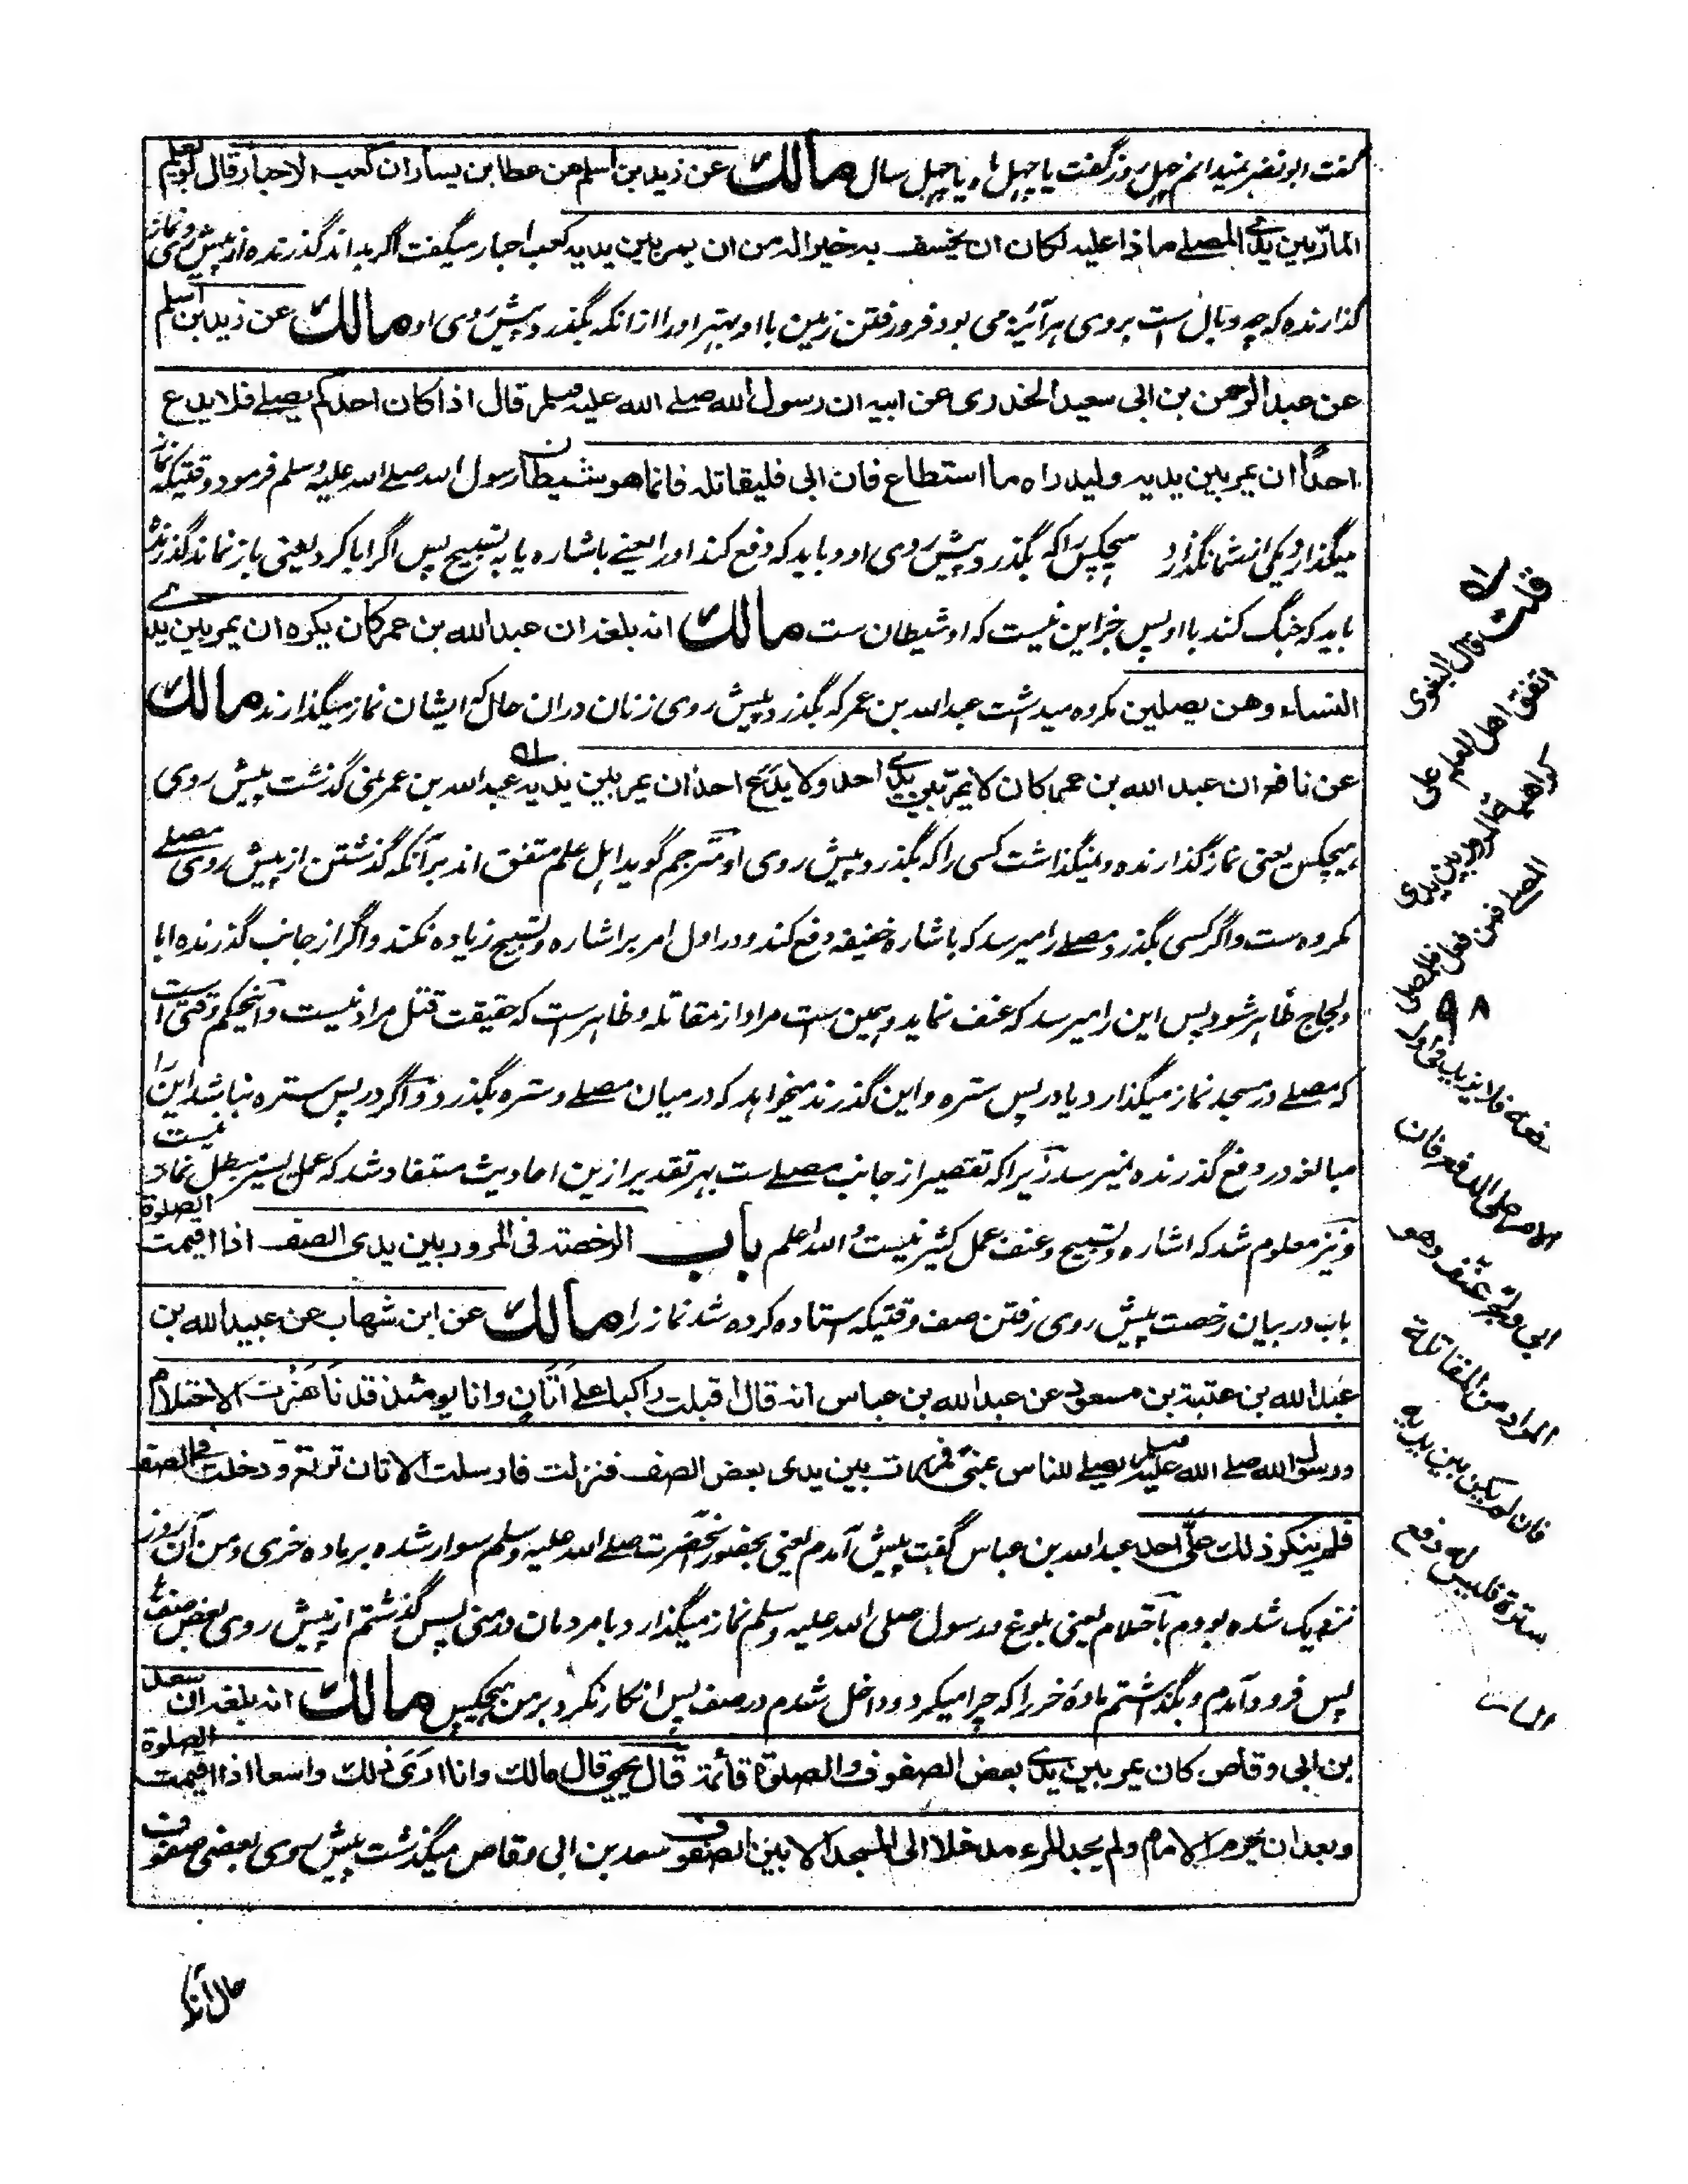 گفت ابو نضر نمیدانم چهل روز گفت یا چهل ماه یا چهل سال مالك عن زید بن اسلم عن عطا بن یسار ان کعب الاحبار قال لو یعلم
المارّ بین یدی المصلے ماذا علیه لکان ان یخسف به خیرا له من ان یمر بین یدیه کعب احبار میگفت اگر بداند گذرنده از پیش روی نماز
گذارنده که چه وبال است بر وی هر آئینه می بود فرو رفتن زمین با او بهتر او را از آنکه بگذرد پیش روی او مالك عن زید بن اسلم
عن عبد الرحمن بن ابی سعید الخدری عن ابیه ان رسول الله صلے الله علیه وسلم قال اذا کان احدکم یصلے فلا یدع
احدًا ان یمر بین یدیه ولیدراه ما استطاع فان ابی فلیقاتله فانما هو شیطان رسول الله صلے الله علیه وسلم فرمود وقتیکه نماز
میگذارد یکی از شما نگذارد هیچکس را که بگذرد پیش روی او و باید که دفع کند او را یعنے باشاره یا به تسبیح پس اگر ابا کرد یعنی باز نماند گذرنده
باید که جنگ کند با او پس جز این نیست که او شیطان ست مالك انه بلغه ان عبد الله بن عمر کان یکره ان یمر بین یدی
النساء وهن یصلین مکروه میداشت عبد الله بن عمر که بگذرد پیش روی زنان در ان حال که ایشان نماز میگذارند مالك
عن نافع ان عبد الله بن عمر کان لا یمر بین یدی احد ولا یدع احدا ان یمر بین یدیه عبد الله بن عمر نمی گذشت پیش روی
هیچکس یعنی نماز گذارنده و نمیگذاشت کسی را که بگذرد پیش روی او مترجم گوید اهل علم متفق اند بر آنکه گذشتن از پیش روی مصلے
مکروه ست و اگر کسی بگذرد مصلے را میرسد که باشاره خفیفه دفع کند و در اول امر بر اشاره و تسبیح زیاده نکند و اگر از جانب گذرنده ابا
و لجاج ظاهر شود پس این را میرسد که عنف نماید و همین است مراد از مقاتله و ظاهر است که حقیقت قتل مراد نیست و اینحکم وقتی است
که مصلے در مسجد نماز میگذارد یا در پس ستره و این گذرنده میخواهد که در میان مصلے و ستره بگذرد و اگر در پس ستره نباشد این را
مبالغه در دفع گذرنده نمیرسد زیرا که تقصیر از جانب مصلے ست بهر تقدیر ازین احادیث مستفاد شد که عمل یسیر مبطل نماز نیست
و نیز معلوم شد که اشاره و تسبیح و عنف عمل کثیر نیست و الله اعلم باب الرخصة فی المرور بین یدی الصف اذا اقیمت الصلوة
باب در بیان رخصت پیش روی رفتن صف وقتیکه استاده کرده شد نماز را مالك عن ابن شهاب عن عبید الله بن
عبد الله بن عتبة بن مسعود عن عبد الله بن عباس انه قال اقبلت راکبا علے اتان وانا یومئذ قد ناهزت الاحتلام
ورسول الله صلے الله علیه وسلم یصلے للناس بمنیً فمررت بین یدی بعض الصف فنزلت فارسلت الاتان ترتع ودخلت فی الصف
فلم ینکر ذلك علیّ احد عبد الله بن عباس گفت پیش آمدم یعنی بحضور آنحضرت صلے الله علیه وسلم سوار شده بر ماده خری و من آن روز
نزدیک شده بودم باحتلام یعنی بلوغ و رسول صلی الله علیه وسلم نماز میگذارد با مردمان در منی پس گذشتم از پیش روی بعض صف
پس فرود آمدم و بگذاشتم ماده خر را که چرا میکرد و داخل شدم در صف پس انکار نکرد بر من هیچکس مالك انه بلغه ان سعد
بن ابی وقاص کان یمر بین یدی بعض الصفوف والصلوة قائمة قال یحیی قال مالك وانا اری ذلك واسعا اذا اقیمت الصلوة
وبعد ان یحرم الامام ولم یجد المرء مدخلا الی المسجد الا بین الصفوف سعد بن ابی وقاص میگذشت پیش روی بعضی صفوف
قلت
قال البغوی
اتفق اهل العلم علی
کراهیة المرور بین یدی
المصلی فمن فعل فللمصلی
٩٨
دفعه فلا یزید فی اول
الامر علی الدفع فان
ابی ولج عنف وهو
المراد من المقاتلة
فان لم یکن بین یدیه
سترة فلیس له دفع
المار